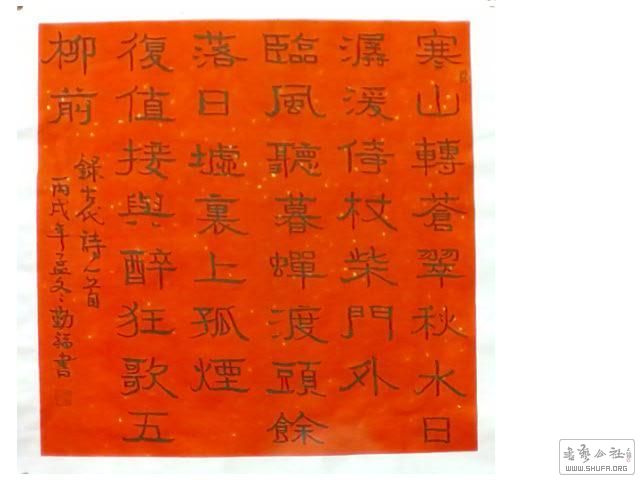 寒山轉蒼翠秋水日
潺湲倚杖柴門外
臨風聽暮蟬渡頭餘
落日墟裏上孤煙
復值接與醉狂歌五
柳前
錄古代詩一首
丙戌年孟冬勤福書
書藝公社
WWW.SHUFA.ORG